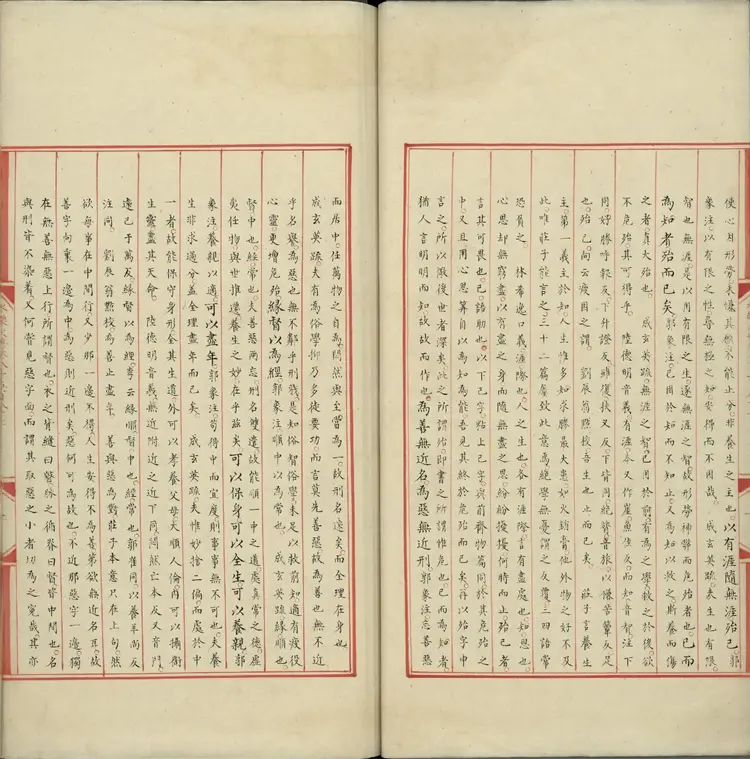 使心以形勞未慊其願不能止分非養生之主也以有涯隨無涯殆已郭
象注以有限之性尋無極之知安得而不困哉 成玄英疏夫生也有限
智也無涯是以用有限之生逐無涯之智故形勞神弊而危殆者也已而
為知者殆而已矣郭象注已困於知而不知止又為知以救之斯養而傷
之者真大殆也 成玄英疏無涯之智已用於前有為之學救之於後欲
不危殆其可得乎 陸德明音義有涯本又作崖魚佳反而知音智注下
同好勝呼報反下升證反雖復扶又反下皆同絕膂音旅以慊苦簟反足
也殆已向云疲困之謂 劉辰翁點校吾生也止而已矣 莊子言養生
主第一義主於知人生惟多知求勝最大患如火銷膏他外物之好不及
此唯莊子能言之三十二篇屢致此意為絕學無憂謂之反覆三四語常
恐負之 林希逸口義涯際也人之生也各有涯際言有盡處也知思也
心思却無窮盡以有盡之身而隨無盡之思紛紛擾擾何時而止殆已者
言其可畏也已語助也以下已字點上已字與前齊物篇同於其危殆之
中又且用心思算自以為知為能吾見其終於危殆而已矣再以殆字申
言之所以儆後世者深矣此之所謂殆即書之所謂惟危也已而為知者
猶人言明明而知故故而作也為善無近名為惡無近刑郭象注忘善惡
而居中任萬物之自為悶然與至當為一故刑名遠矣而全理在身也
成玄英疏夫有為俗學抑乃多徒要切而言莫先善惡故為善也無不近
乎名譽為惡也無不鄰乎刑戮是知俗智俗學未足以救前知適有疲役
心靈更增危殆緣督以為經郭象注順中以為常也 成玄英疏緣順也
督中也經常也夫善惡兩忘刑名雙遣故能順一中之道處真常之德虛
夷任物與世推遷養生之妙在乎茲矣可以保身可以全生可以養親郭
象注養親以適可以盡年郭象注苟得中而宜度則事事無不可也夫養
生非求過分蓋全理盡年而已矣 成玄英疏夫惟妙捨二偏而處於中
一者故能保守身形全其生道外可以孝養父母大順人倫內可以攝衛
生靈盡其天命 陸德明音義無近附近之近下同悶然亡本反又音門
遠己于萬反緣督以為經李云緣順督中也經常也郭崔同以養羊尚反
注同 劉辰翁點校為善止盡年 善與惡為對莊子本意只在上句然
欲每事在中間行又少那一邊不得人生安得不為善第欲無近名耳故
善字向裏一邊為中為惡則近刑矣惡何可為故也不近那惡字一邊獨
在無善無惡上行所謂督也衣之背縫曰督脉之循脊曰督皆中間也名
與刑皆不染着又何常見惡字面而謂其取惡之小者切為之寬哉其亦